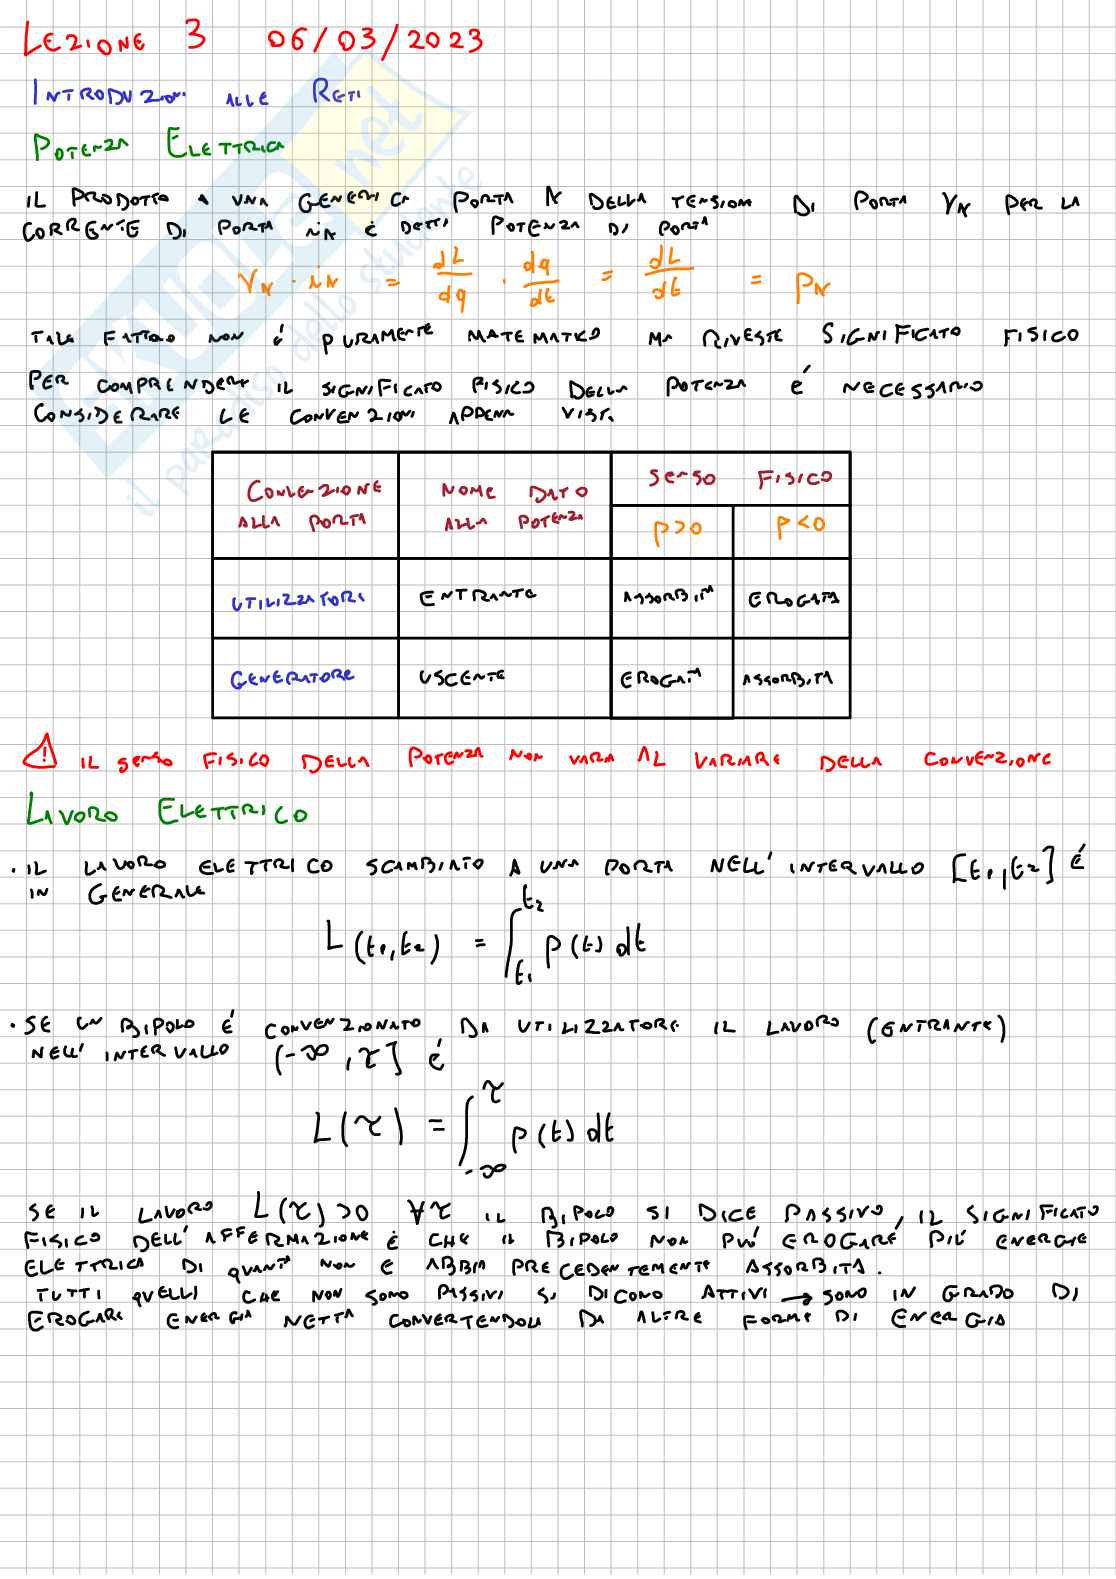 LEZIONE 3 06/03/2023
INTRODUZIONI ALLE RETI
POTENZA ELETTRICA
IL PRODOTTO A UNA GENERICA PORTA K DELLA TENSIONE DI PORTA VK PER LA
CORRENTE DI PORTA iK È DETTA POTENZA DI PORTA
VK · iK = dL/dq · dq/dt = dL/dt = PK
TALE FATTORE NON É PURAMENTE MATEMATICO MA RIVESTE SIGNIFICATO FISICO
PER COMPRENDERE IL SIGNIFICATO FISICO DELLA POTENZA É NECESSARIO
CONSIDERARE LE CONVENZIONI APPENA VISTE
CONVENZIONE ALLA PORTA
NOME DATO ALLA POTENZA
SENSO FISICO
P>0
P<0
UTILIZZATORE
ENTRANTE
ASSORBITA
EROGATA
GENERATORE
USCENTE
EROGATA
ASSORBITA
! IL SENSO FISICO DELLA POTENZA NON VARIA AL VARIARE DELLA CONVENZIONE
LAVORO ELETTRICO
· IL LAVORO ELETTRICO SCAMBIATO A UNA PORTA NELL'INTERVALLO [t1,t2] É
IN GENERALE
L(t1,t2) = ∫t1^t2 p(t) dt
· SE UN BIPOLO É CONVENZIONATO DA UTILIZZATORE IL LAVORO (ENTRANTE)
NELL'INTERVALLO (-∞,τ] É
L(τ) = ∫-∞^τ p(t) dt
SE IL LAVORO L(τ)>0 ∀τ IL BIPOLO SI DICE PASSIVO, IL SIGNIFICATO
FISICO DELL'AFFERMAZIONE È CHE IL BIPOLO NON PUÓ EROGARE PIÚ ENERGIE
ELETTRICA DI QUANTA NON E ABBIA PRECEDENTEMENTE ASSORBITA.
TUTTI QUELLI CHE NON SONO PASSIVI SI DICONO ATTIVI → SONO IN GRADO DI
EROGARE ENERGIA NETTA CONVERTENDOLA DA ALTRE FORME DI ENERGIA
il paradiso dello studente